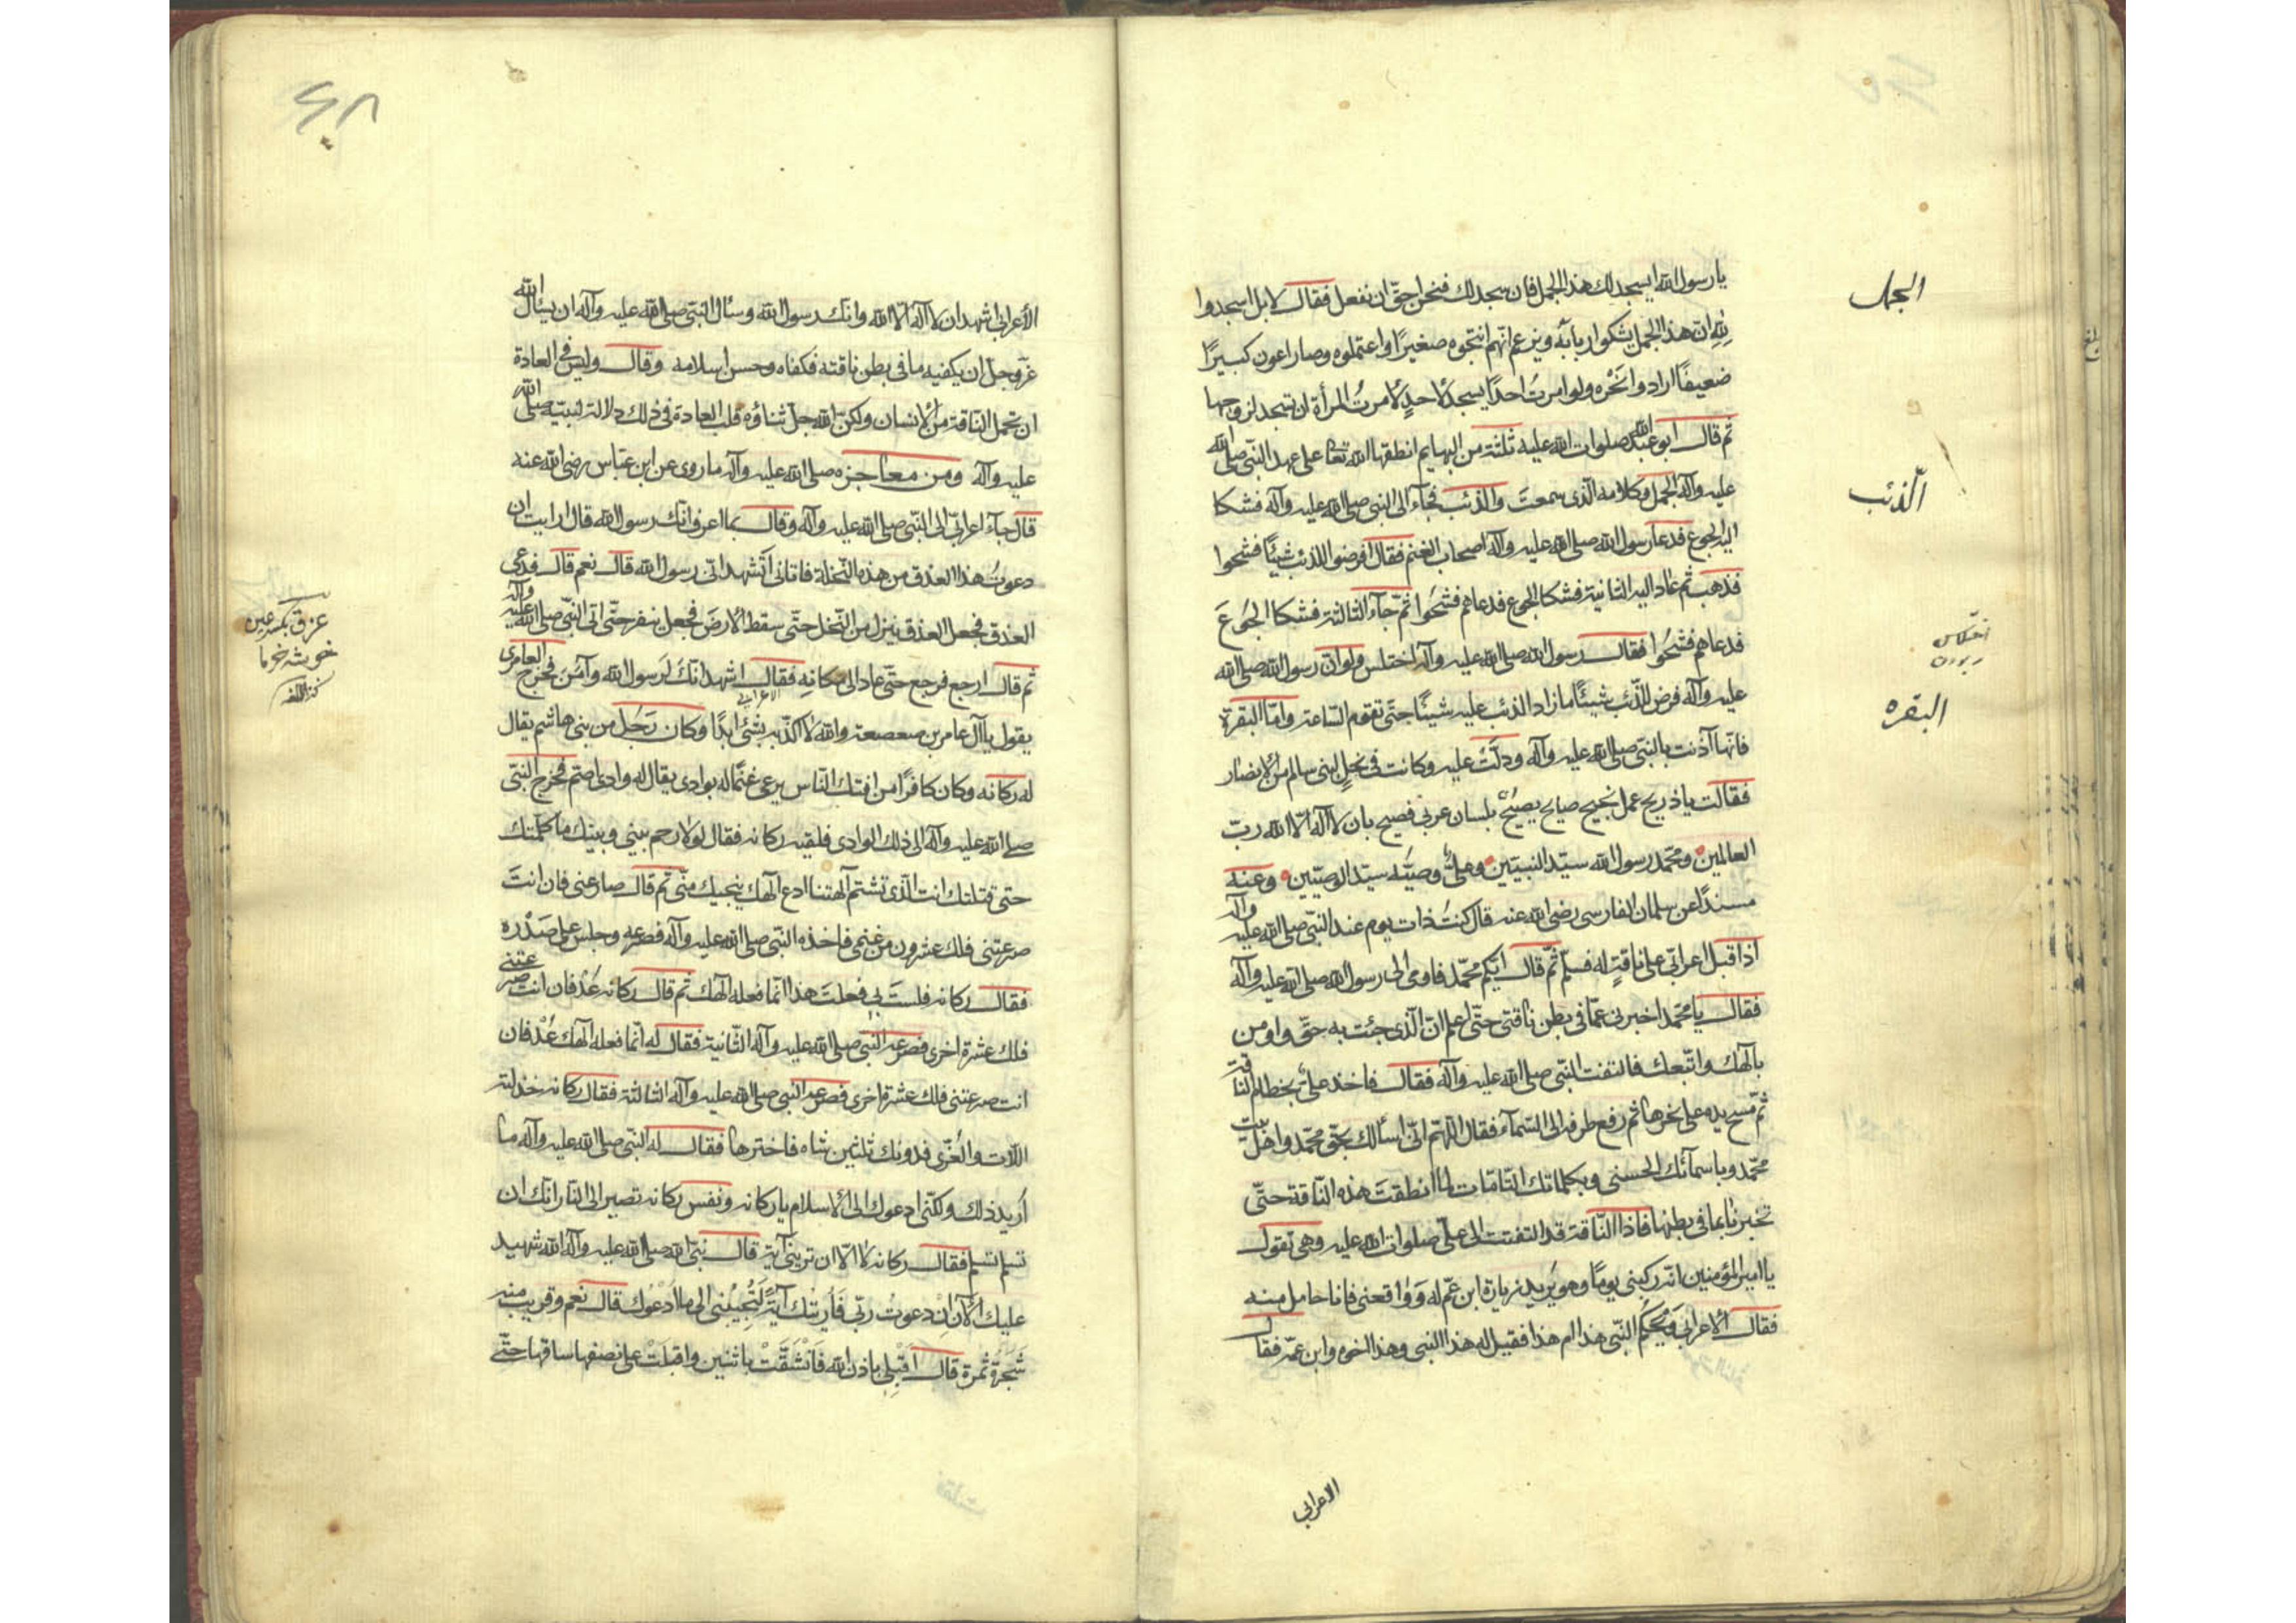 يا رسول الله ايسجد لك هذا الجمل فان سجد لك فنحن احق ان نفعل فقال لا بل اسجدوا
لله ان هذا الجمل يشكوا اربابه ويزعم انهم انتجوه صغيرًا واعتملوه وصار اعون كبيرًا
ضعيفًا ارادوا نَحْره ولو امرتُ احدًا يسجد لاحدٍ لامرتُ المرأة ان تسجد لزوجها
ثم قال ابو عبد الله صلوات الله عليه ثلثة من البهايم انطقها الله تعا على عهد النبى صلى الله
عليه وآله الجمل وكلامه الّذى سمعتَ والذئب فجآء الى النبى صلى الله عليه وآله فشكا
اليه الجوع فدعا رسول الله صلى الله عليه وآله اصحاب الغنم فقال افرضوا للذئب شيئًا فشحوا
فذهب ثم عاد اليه الثانية فشكا الجوع فدعاهم فشحوا ثمّ جآء الثالثة فشكا الجُوعَ
فدعاهم فشحُوا فقال رسول الله صلى الله عليه وآله اختلس ولو انّ رسول الله صلى الله
عليه وآله فرض للذّئب شيئًا ما زاد الذئب عليه شيئًا حتّى تقوم السّاعة وامّا البقرة
فانّها آذنت بالنبّى صلى الله عليه وآله ودلّتْ عليه وكانت فى نخلٍ لبنى سالم من الانصار
فقالت يا ذريح عمل نجيح صايح يصيْح بلسان عربى فصيح بان لا آله الّا الله ربّ
العالمين ومحمد رسول الله سيّد النبيّين وعلىٌّ وصيّه سيّد الوصيّين وعنه
مسندًا عن سلمان الفارسى رضى الله عنه قال كنتُ ذات يوم عند النبّى صلى الله عليه وآله
اذا قبل اعرابّى على ناقةٍ له فسلّم ثمّ قال ايّكم محمّد فاومى الى رسول الله صلى الله عليه وآله
فقال يا محمّد اخبرنى عمّا فى بطن ناقتى حتّى اعلم انّ الّذى جئت به حقّ واومن
بآلهك واتّبعك فالتفت النبّى صلى الله عليه وآله فقال فاخذ علىّ بخطام الناقة
ثمّ مسح يده على نحرها ثم رفع طرفه الى السّمآء فقال اللّهم انّى اسألك بحقّ محمّد واهل بيت
محمّد وباسمآئك الحسنى وبكلماتك التّامّات لما انطقتَ هذه النّاقة حتّى
تخبرنا بما فى بطنها فاذا النّاقة قد التفتت الى علىّ صلوات الله عليه وهى تقول
يا امير المؤمنين انّه ركبنى يومًا وهو يُريد زيارة ابن عمّ له وَواقعنى فانا حامل منه
فقال الاعرابى وَيْحكُم النبّى هذا ام هذا فقيل له هذا النبى وهذا اخوه وابن عمّه فقال
الجمل
الّذئب
اختلاس
ربودن
البقره
الاعرابى
الأعرابى اشهد ان لا آله الّا الله وانّك رسول الله وسأل النبّى صلى الله عليه وآله ان يسأل الله
عزّ وجلّ ان يكفيه ما فى بطن ناقته فكفاه وحسن اسلامه وقال وليس فى العادة
ان تحمل النّاقة من الإنسان ولكنّ الله جلّ ثناؤه قلب العادة فى ذلك دلالة لنبيّه صلى الله
عليه وآله ومن معاجزه صلى الله عليه وآله ما روى عن ابن عبّاس رضى الله عنه
قال جآء اعرابىّ الى النبّى صلى الله عليه وآله وقال بما اعرف انّك رسول الله قال ارايت ان
دعوتُ هذا العذق من هذه النّخلة فاتانى اتشهد انّى رسول الله قال نعم قال فدعى
العذق فجعل العذق ينزل من النّخل حتّى سقط الارضَ فجعل ينفر حتّى اتى النبّى صلى الله عليه وآله
ثم قال ارجع فرجع حتّى عاد الى مكانهِ فقال اشهد انّكَ لَرسول الله وآمَنَ فخرج العامرى
الاعرابى
يقول يا آل عامر بن صعصعة والله لا اكذّبه بشئ ابدًا وكان رَجُل من بنى هاشم يقال
له ركانه وكان كافرًا من افتك النّاس يرعى غنمًا له بوادى يقال له وادى اضم فخرج النبّى
صلى الله عليه وآله الى ذلك الوادى فلقيه ركانه فقال لولا رحم بينى وبينك ما كلّمتك
حتى قتلتك انت الّذى تشتم آلهتنا ادع آلهك ينجيك منّى ثم قال صارعنى فان انتَ
صرعتنى فلك عشرون من غنمى فاخذه النبّى صلى الله عليه وآله فصرعه وجلس على صَدْره
فقال ركانه فلستَ بى فعلتَ هذا انّما فعله آلهك ثم قال ركانه عُدْ فان انت صرعتنى
فلك عشرة اخرى فصرعه النّبى صلى الله عليه وآله الثّانية فقال له انّما فعله آلهك عُدْ فان
انت صرعتنى فلك عشرة اخرى فصرعه النبى صلى الله عليه وآله الثالثة فقال ركانه خذلته
اللّات والعُزّى فدونك ثلثين شاه فاخترها فقال له النّبى صلى الله عليه وآله ما
اُريد ذلك ولكنّى ادعوك الى الاسلام يا ركانه ونفس ركانه تصير الى النّار انّك ان
تسلم تسلم فقال ركانه لا الّا ان ترينى آية قال نبّى الله صلى الله عليه وآله الله شهيد
عليك الآن اِنْ دعوتُ ربّى فَأريتك آيةً لَتُجيبُنى الى ما ادْعوك قال نعم وقريب منه
شَجَرةٌ ثمرة قال اقبلى باذن الله فَانْشقَّتْ باثنين واقبلَتْ على نصفها ساقها حتّى
عزق بكسر عين
خوشه خرما
كنز اللغه